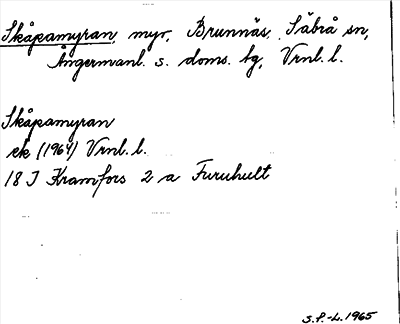 Skåpamyran, myr, Brunnäs, Säbrå sn,
Ångermanl. s. doms. bg, Vrnl. l.
Skåpamyran
ek (1964) Vrnl. l.
18 I Kramfors 2 a Furuhult
S.P.-L. 1965